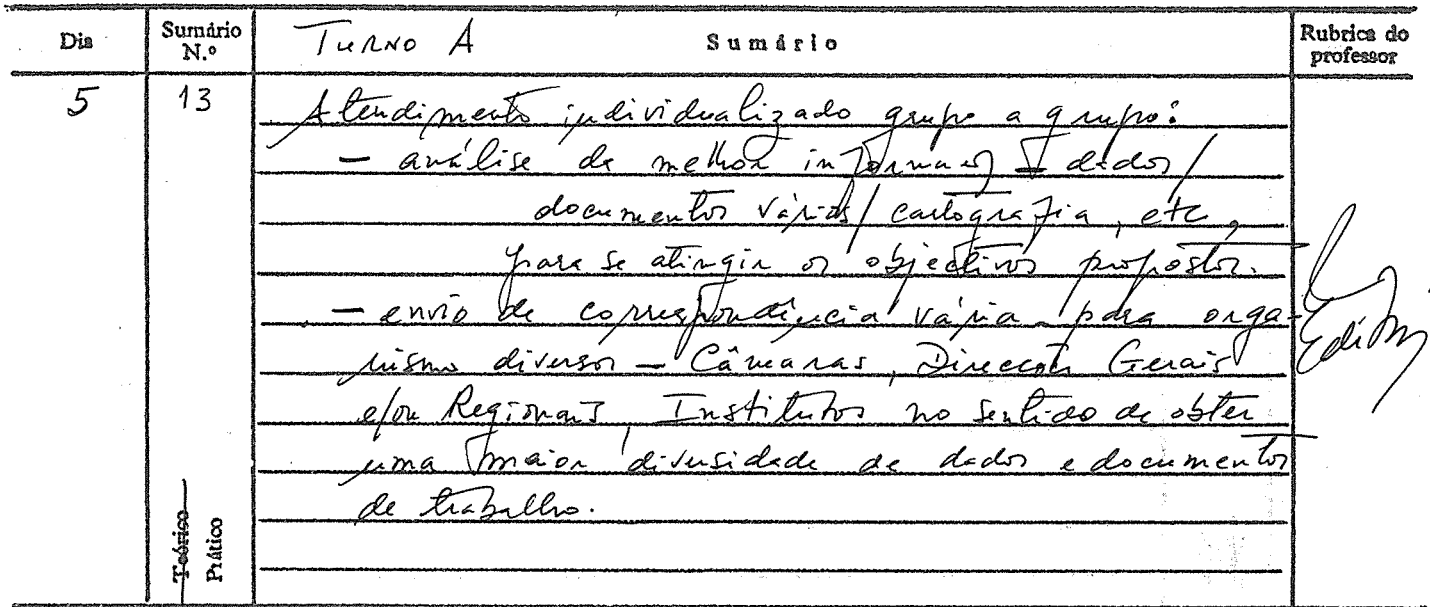 Dia Sumário N.º TURNO A Sumário Rubrica do professor
5 13 Atendimento individualizado grupo a grupo:
- análise da melhor informação dados/
documentos vários/cartografia, etc,
para se atingir os objectivos propostos.
- envio de correspondência vária para orga-
nismo diversos - Câmaras, Direcções Gerais
e/ou Regionais, Institutos no sentido de obter
uma maior diversidade de dados e documentos
de trabalho.
Teórico
Prático